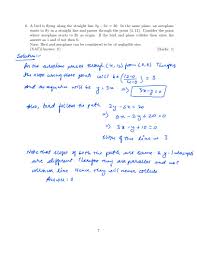 6. A bird is flying along the straight line 2y - 6x = 20. In the same plane, an aeroplane
starts to fly in a straight line and passes through the point (4, 12). Consider the point
where aeroplane starts to fly as origin. If the bird and plane collides then enter the
answer as 1 and if not then 0.
Note: Bird and aeroplane can be considered to be of negligible size.
[NAT][Answer: 0] [Marks: 1]
Solution:-
As the aeroplane passes through (4, 12) from (0,0). Therefore
the slope using these points will be (12-0 / 4-0) = 3
And so equation will be y = 3x ⇒ 3x-y = 0
Also, bird follows the path 2y - 6x = 20
⇒ 6x - 2y + 20 = 0
⇒ 3x - y + 10 = 0
Slope of this line = 3
Note that slopes of both the path are same & y-intercepts
are different. Therefore they are parallel and not
same line. Hence they will never collide
Answer: 0
7